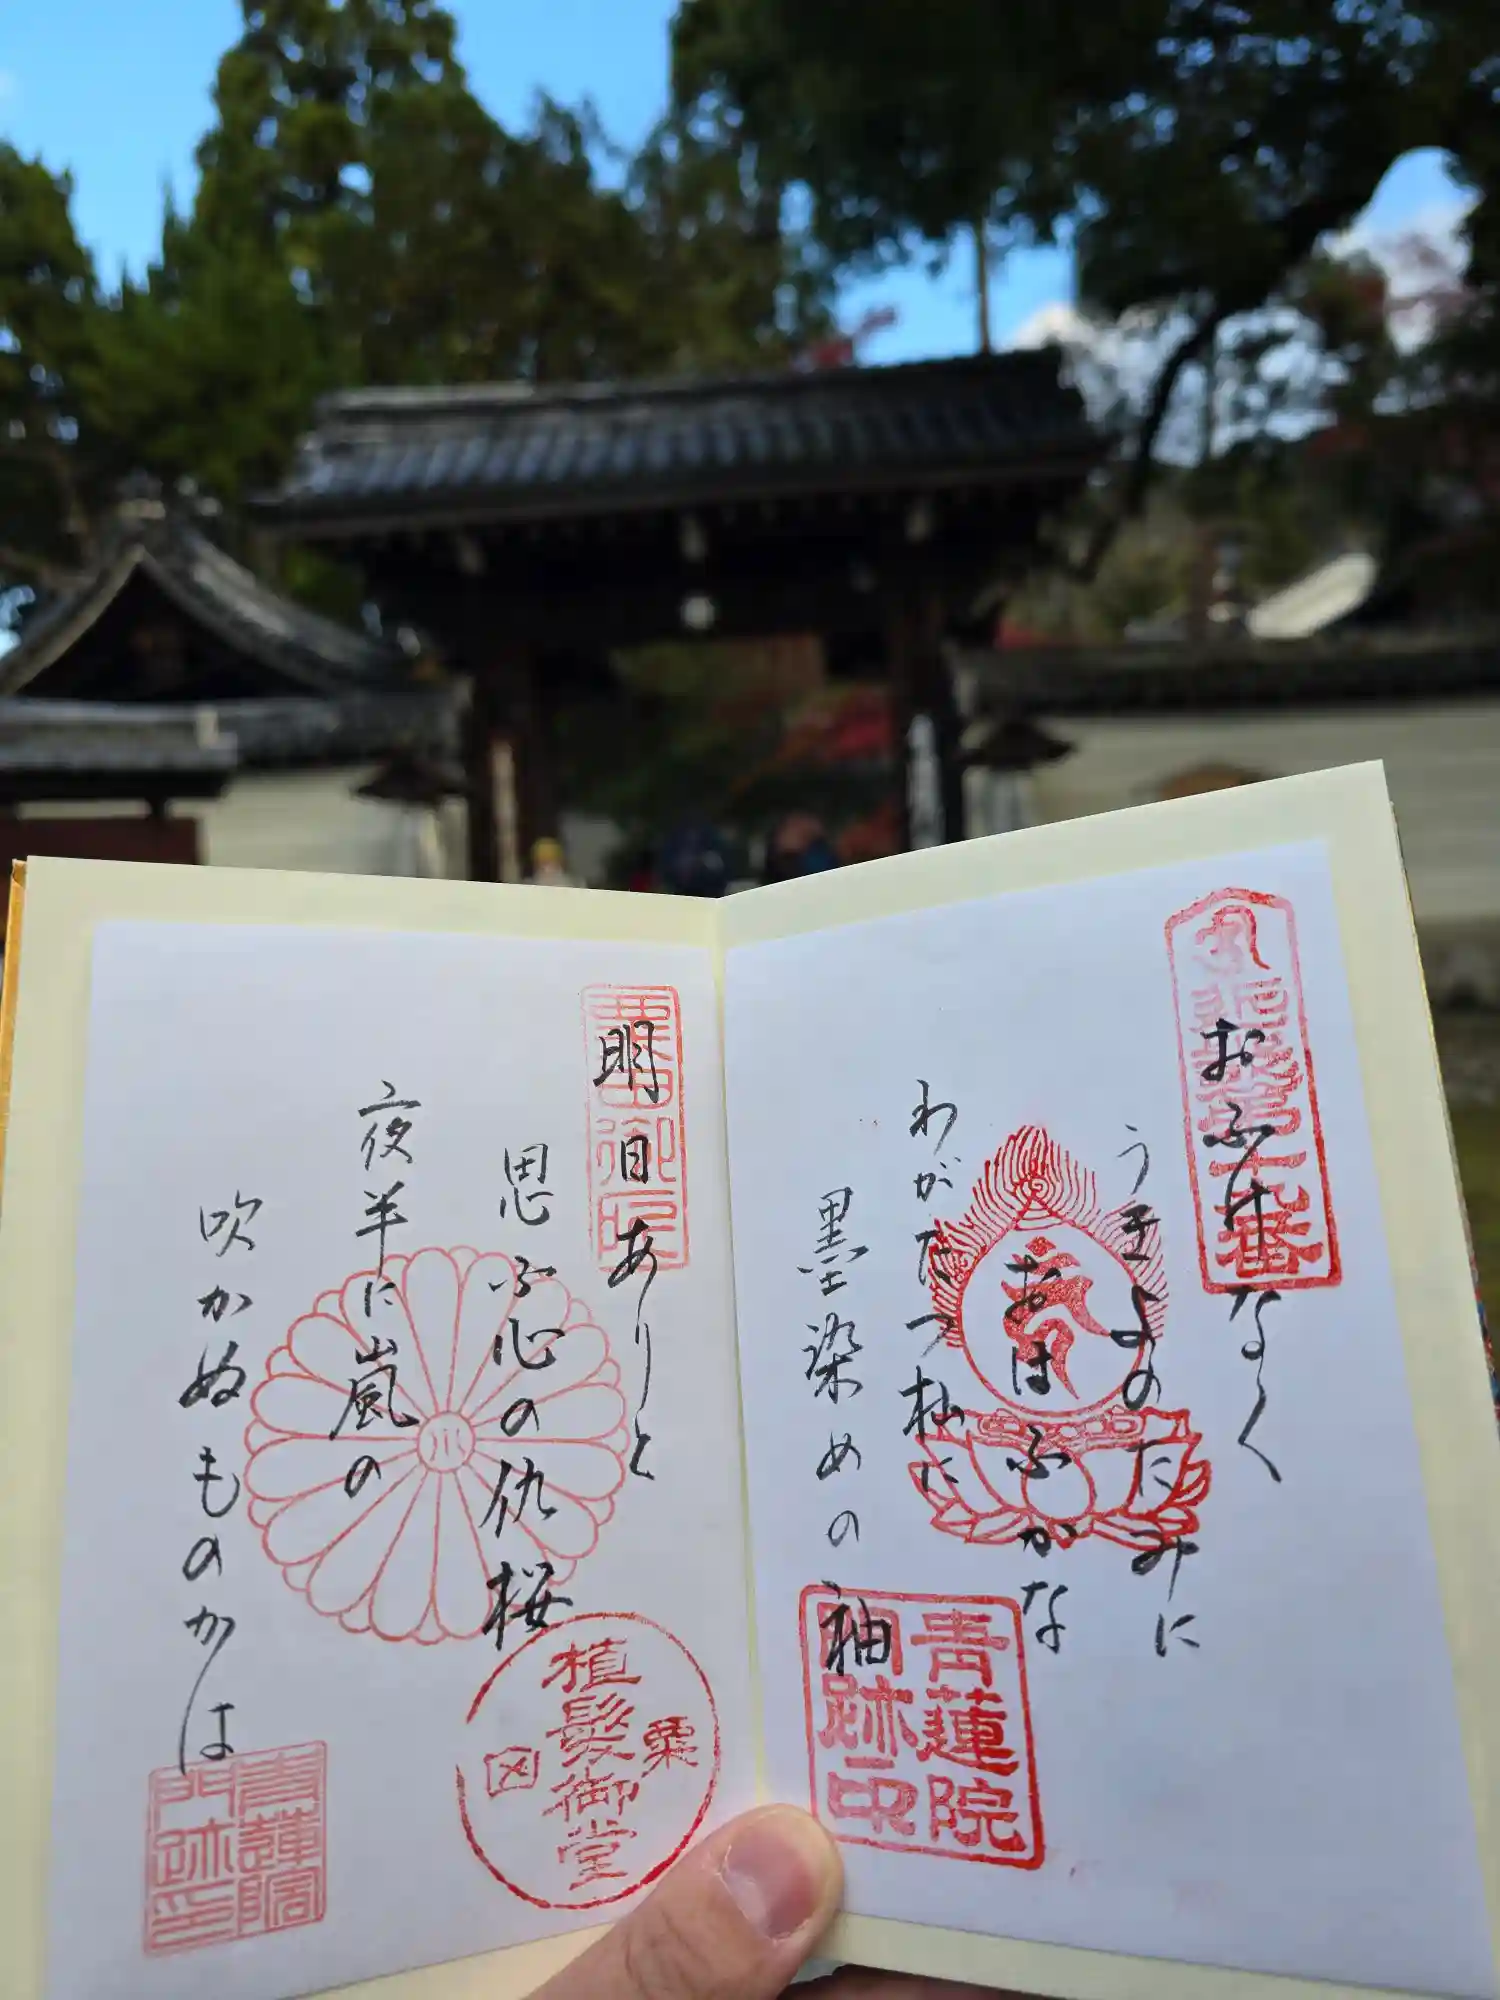 おふけなく
うき世のたみに
おほふかな
わがたつ杣に
墨染めの袖
青蓮院
門跡之印
明日ありと
思ふ心の仇桜
夜半に嵐の
吹かぬものかは
粟田御所
植髪御堂
粟
青蓮院
門跡印